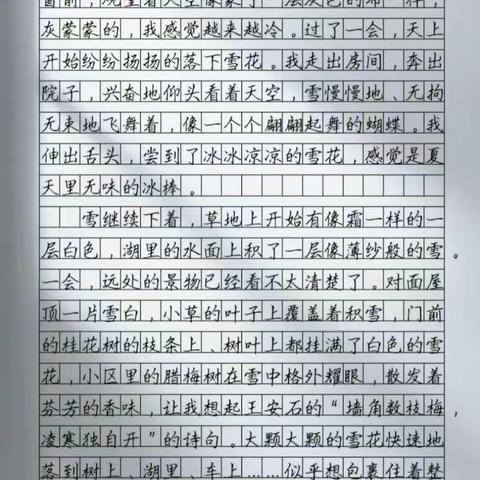 窗前，院里看天空像蒙了一层灰色的布一样，
灰蒙蒙的，我感觉越来越冷。过了一会，天上
开始纷纷扬扬的落下雪花。我走出房间，奔出
院子，兴奋地仰头看着天空，雪慢慢地、无拘
无束地飞舞着，像一个个翩翩起舞的蝴蝶。我
伸出舌头，尝到了冰冰凉凉的雪花，感觉是夏
天里无味的冰棒。
雪继续下着，草地上开始有像霜一样的一
层白色，湖里的水面上积了一层像薄纱般的雪。
一会，远处的景物已经看不太清楚了。对面屋
顶一片雪白，小草的叶子上覆盖着积雪，门前
的桂花树的枝条上、树叶上都挂满了白色的雪
花，小区里的腊梅树在雪中格外耀眼，散发着
芬芳的香味，让我想起王安石的“墙角数枝梅，
凌寒独自开”的诗句。大颗大颗的雪花快速地
落到树上、湖里、车上……似乎想包裹住着整